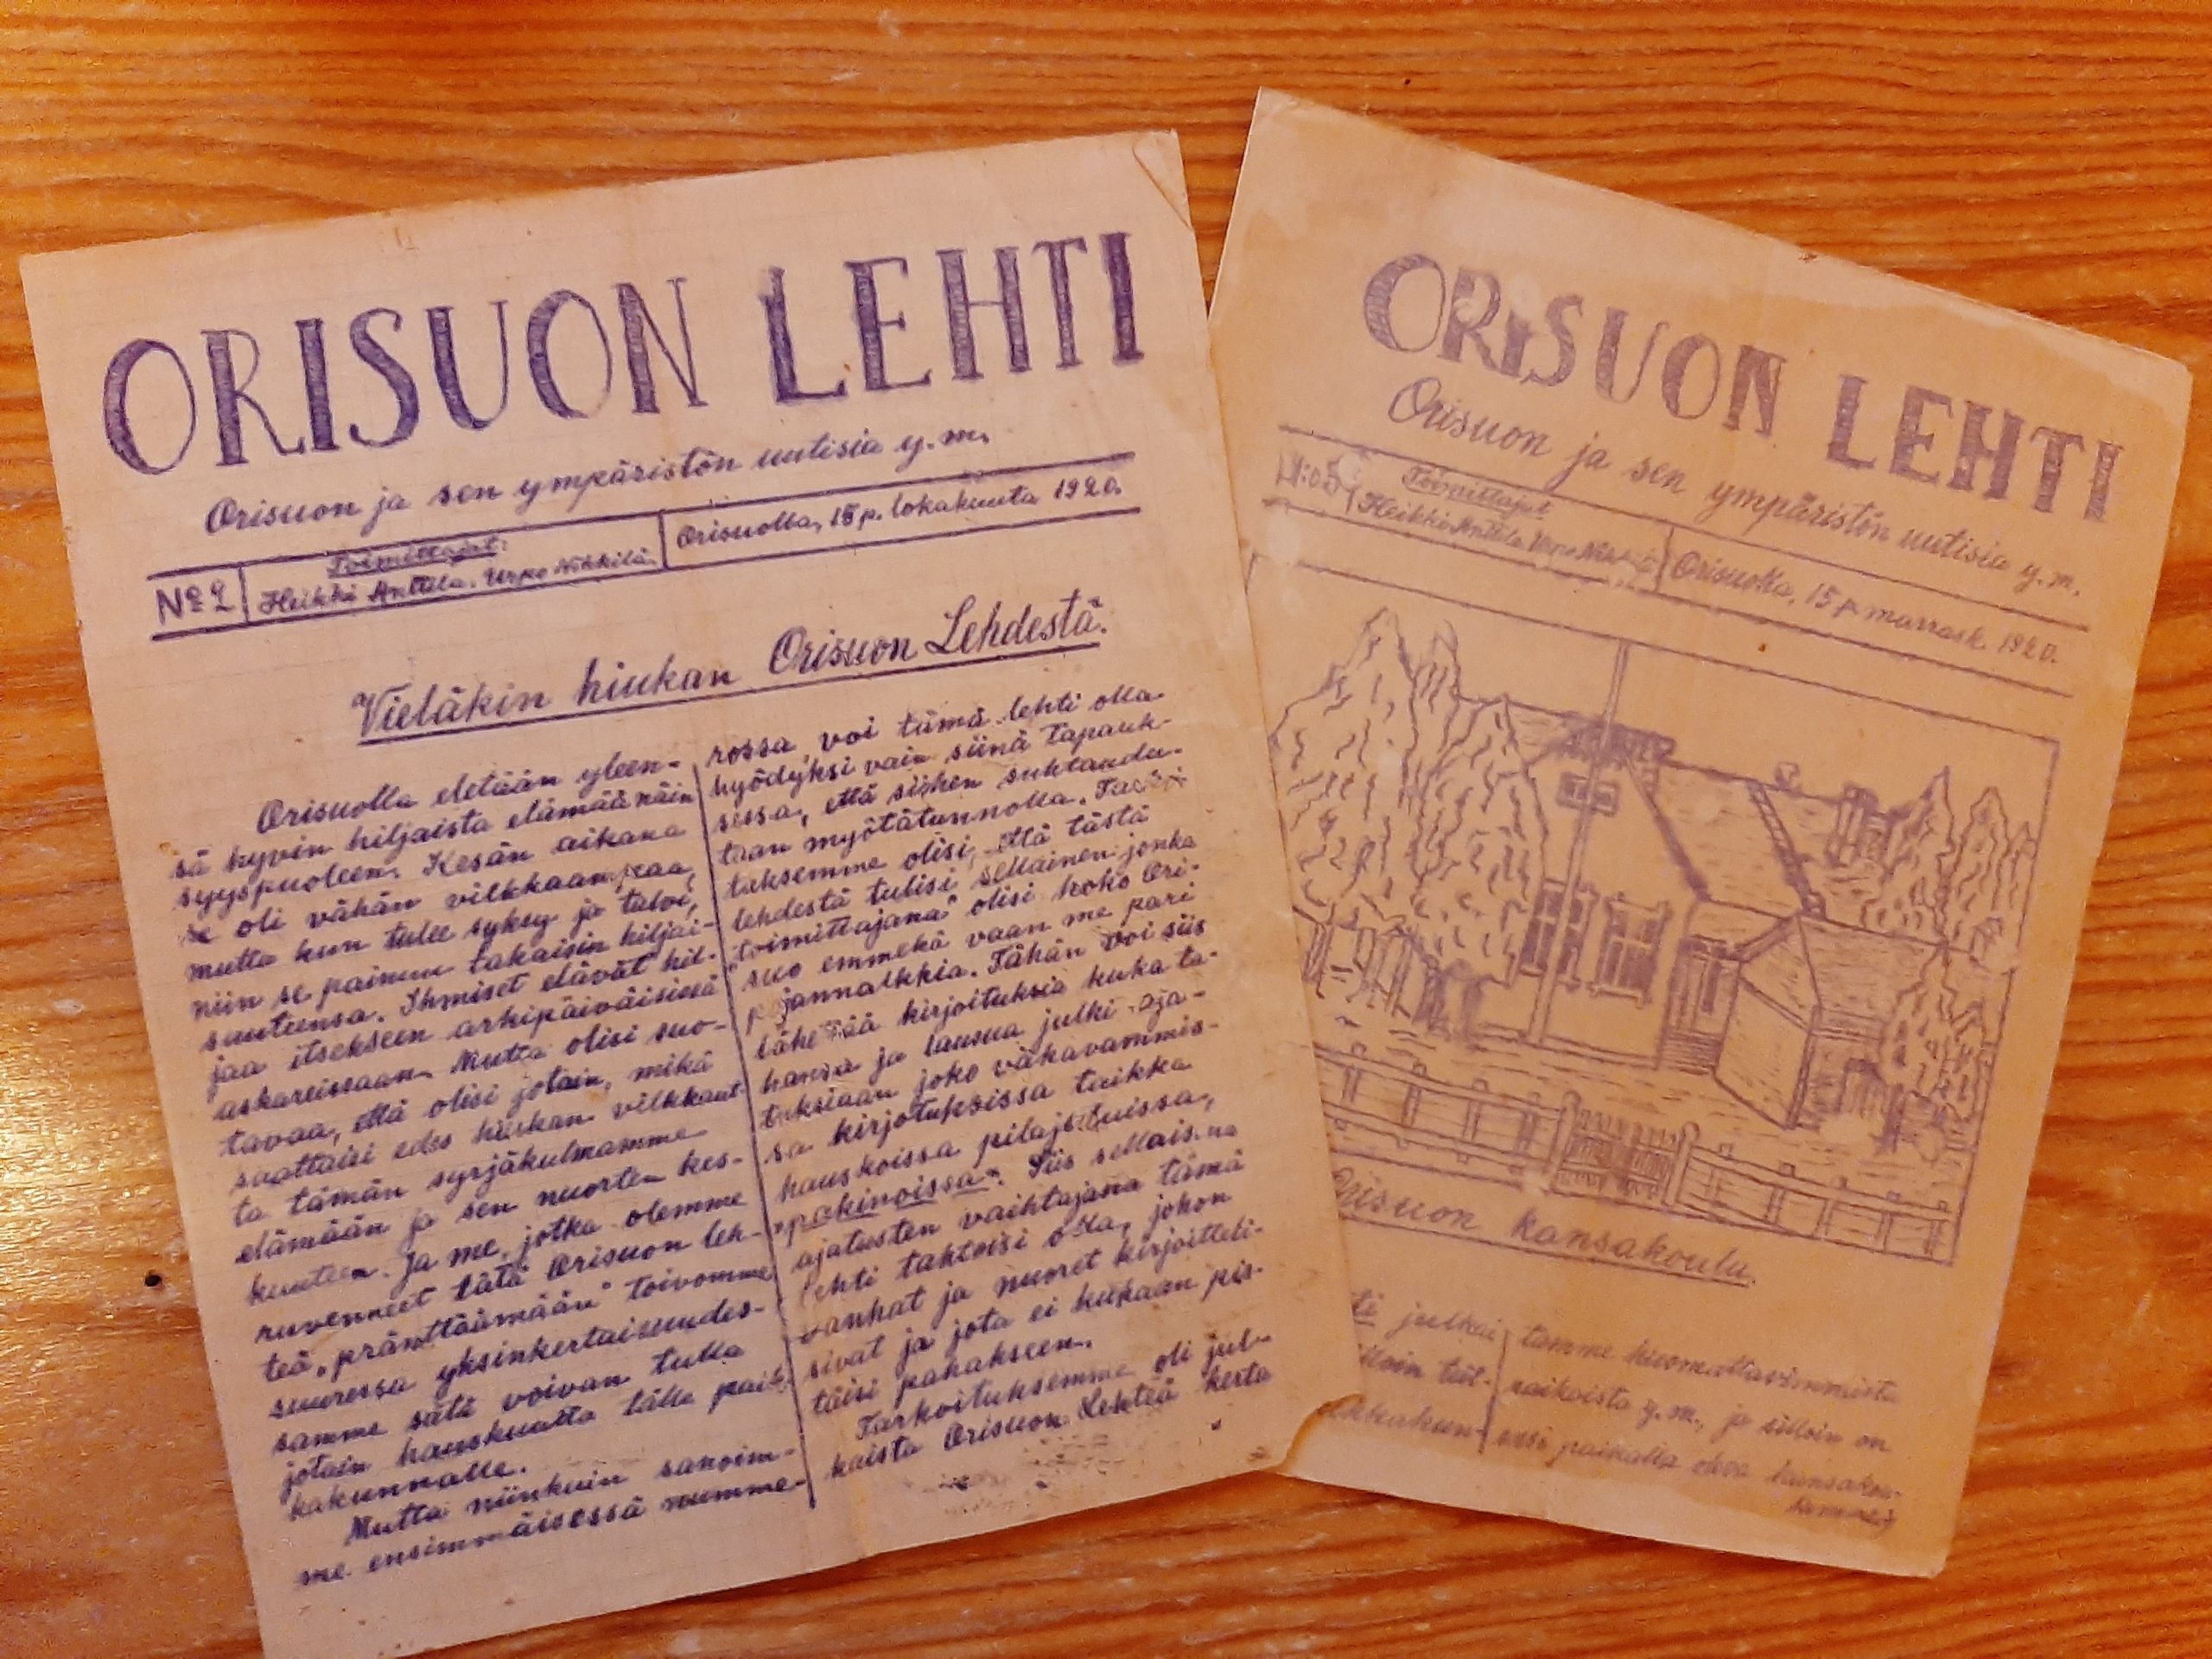 ORISUON LEHTI
Orisuon ja sen ympäristön uutisia y.m.
Nº 2
Toimittajat:
Heikki Anttila, Urpo Nikkilä.
Orisuolla, 15 p. lokakuuta 1920.
Vieläkin hiukan Orisuon Lehdestä.
Orisuolla eletään yleen-
sä hyvin hiljaista elämää näin
syyspuoleen. Kesän aikana
se oli vähän vilkkaampaa,
mutta kun tulee syksy ja talvi,
niin se painuu takaisin hiljai-
suuteensa. Ihmiset elävät hil-
jaa itsekseen arkipäiväisissä
askareissaan. Mutta olisi suo-
tavaa, että olisi jotain, mikä
saattaisi edes hiukan vilkkaut-
ta tämän syrjäkulmamme
elämään ja sen nuorten kes-
kuuteen. Ja me, jotka olemme
ruvenneet tätä Orisuon leh-
teä „pränttäämään" toivomme
suuressa yksinkertaisuudes-
samme sätä voivan tulla
jotain hauskuutta tälle paik-
kakunnalle.
Mutta niinkuin sanoim-
me ensimmäisessä numme-
rossa, voi tämä lehti olla
hyödyksi vain siinä tapauk-
sessa, että siihen suhtaudu-
taan myötätunnolla.
taksemme olisi, että tästä
lehdestä tulisi sellainen jonka
„toimittajana" olisi koko Ori-
suo emmekä vaan me pari
pojannalkkia. Tähän voi siis
lähettää kirjoituksia kuka ta-
hansa ja lausua julki aja-
tuksiaan joko vakavammis-
sa kirjotuksissa taikka
hauskoissa pilajutuissa,
„pakinoissa". Siis sellaisena
ajatusten vaihtajana tämä
lehti tahtoisi olla, johon
vanhat ja nuoret kirjoitteli-
sivat ja jota ei kukaan pis-
täisi pahakseen.
Tarkoituksemme oli jul-
kaista Orisuon Lehteä kerta
ORISUON LEHTI
Orisuon ja sen ympäristön uutisia y.m.
Toimittajat
Heikki Anttila Urpo Nikkilä
Orisuolla, 15 p marrask. 1920.
Orisuon kansakoulu.
julkai
tämme huomattavimmista
raikoista y.m., ja silloin on
ensi paikalla oleva kansakou-
lumme